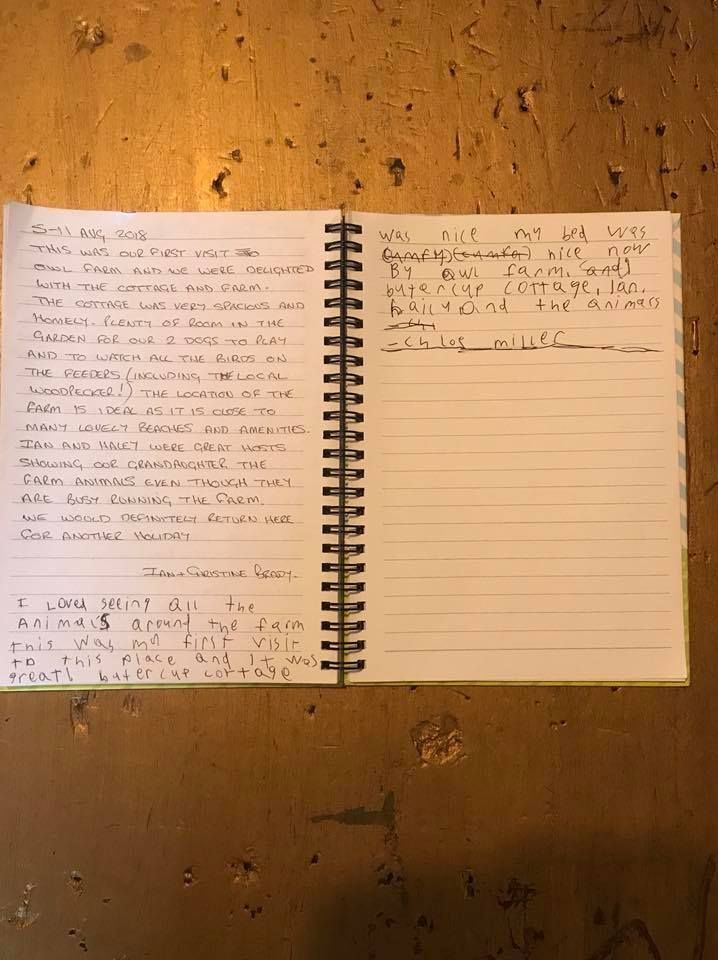 5-11 AUG 2018
THIS WAS OUR FIRST VISIT TO
OWL FARM AND WE WERE DELIGHTED
WITH THE COTTAGE AND FARM.
THE COTTAGE WAS VERY SPACIOUS AND
HOMELY. PLENTY OF ROOM IN THE
GARDEN FOR OUR 2 DOGS TO PLAY
AND TO WATCH ALL THE BIRDS ON
THE FEEDERS (INCLUDING THE LOCAL
WOODPECKER!) THE LOCATION OF THE
FARM IS IDEAL AS IT IS CLOSE TO
MANY LOVELY BEACHES AND AMENITIES.
IAN AND HALEY WERE GREAT HOSTS
SHOWING OUR GRANDAUGHTER THE
FARM ANIMALS EVEN THOUGH THEY
ARE BUSY RUNNING THE FARM.
WE WOULD DEFINITELY RETURN HERE
FOR ANOTHER HOLIDAY
IAN + CHRISTINE BRADY.
I Loved seeing all the
Animals around the farm
this was my first visit
to this place and It was
great! butercup cottage
was nice my bed was
nice now
By owl farm, and
butercup cottage, Ian,
haily and the animals
- Chloe miller